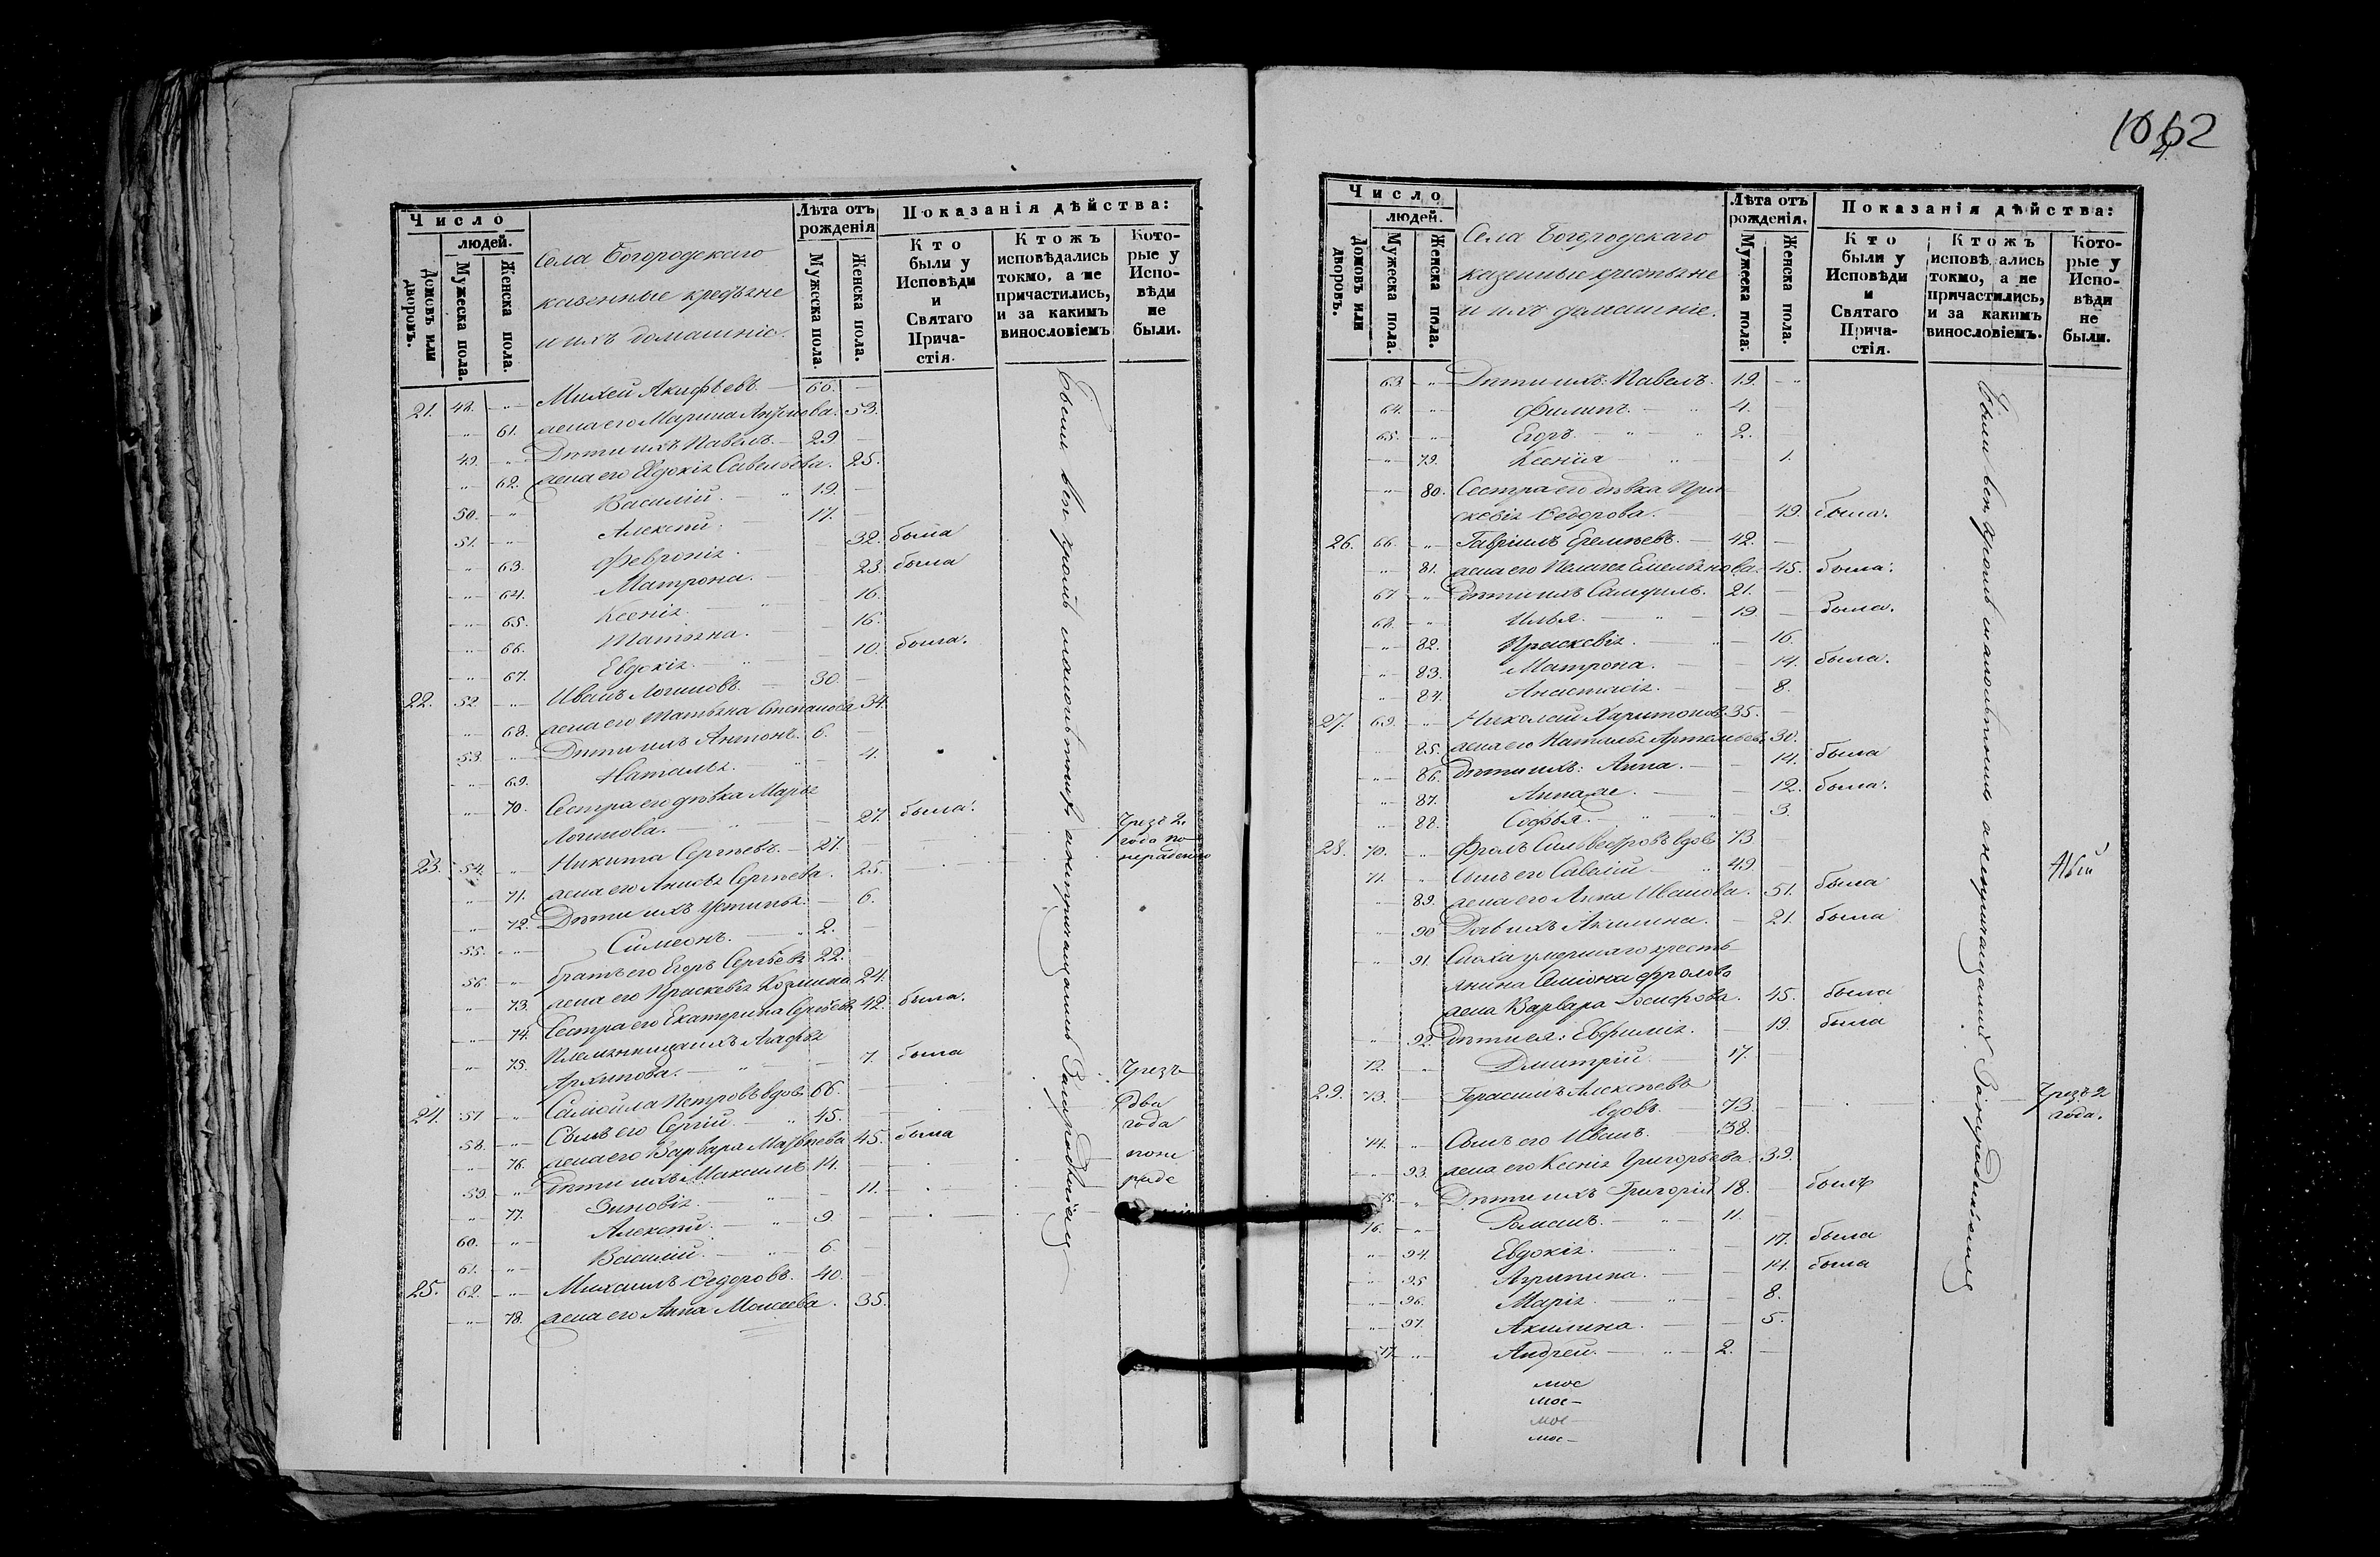 Число
людей.
Домовъ или дворовъ.
Мужеска пола.
Женска пола.
Села Богородскаго
казенные крестьяне
и ихъ домашніе.
Лѣта отъ рожденія
Мужеска пола.
Женска пола.
Показанія дѣйства:
Кто были у Исповѣди и Святаго Прича-стія.
Ктожъ исповѣдались токмо, а не причастились, и за какимъ винословіемъ
Кото-рые у Испо-вѣди не были.
21. 48. -„- Михей Акифьевъ. 66. —
-„- 61. жена его Марина Антонова. 53.
49. -„- Дѣти ихъ Павелъ. 29 —
-„- 62. жена его Евдокія Савельева. 25.
50. -„- Василій. 19. —
51. -„- Алексѣй. 17. —
-„- 63. Февронія. 32. была
-„- 64. Матрона. 23. была
-„- 65. Ксенія. 16.
-„- 66. Татьяна. 16.
-„- 67. Евдокія. 10. была.
22. 52 -„- Иванъ Логиновъ. 30. —
-„- 68. жена его Татьяна Степанова 34.
53. -„- Дѣти ихъ Антонъ. 6. —
-„- 69. Наталья. 4.
-„- 70. Сестра его дѣвка Марья
Логинова. 27. была.
23. 54. -„- Никита Сергѣевъ. 27. — Чрезъ 2. года по нерадению
-„- 71. жена его Анисья Сергѣева. 25.
-„- 72. Дѣти ихъ Устинья. 6.
55. -„- Симеонъ. 2. —
56. -„- братъ его Егоръ Сергѣевъ 22. —
-„- 73. жена его Праскевія Козмина 24.
-„- 74. Сестра его Екатерина Сергѣева 42. была.
-„- 75. Племянница ихъ Агафья
Архипова. 7. была
24. 57 -„- Самойла Петровъ вдовъ 66. — Чрезъ
58. -„- Сынъ его Сергій 45. — два года
-„- 76. жена его Варвара Матвѣева 45. была
59. -„- Дѣти ихъ: Максимъ 14. — поне
-„- 77. Зиновія. 11. раде
60. -„- Алексѣй. 9. —
61. -„- Василій. 6. —
25. 62. -„- Михаилъ Ѳедоровъ. 40. —
-„- 78. жена его Анна Моисеева. 35.
Были всѣ кромѣ малолѣтнихъ
1062
Число
людей.
Домовъ или дворовъ.
Мужеска пола.
Женска пола.
Села Богородскаго
казенные крестьяне
и ихъ домашніе.
Лѣта отъ рожденія.
Мужеска пола.
Женска пола.
Показанія дѣйства:
Кто были у Исповѣди и Святаго Прича-стія.
Ктожъ исповѣдались токмо, а не причастились, и за какимъ винословіемъ.
Кото-рые у Испо-вѣди не были.
63. -„- Дѣти ихъ: Павелъ. 19. —
64. -„- Филипъ. 4. —
65. -„- Егоръ. 2. —
-„- 79. Ксенія 1.
-„- 80. Сестра его дѣвка Пра-
скевія Ѳедорова. 49. была.
26. 66. -„- Гавріилъ Еремѣевъ. 42. —
-„- 81. жена его Пелагея Емельянова. 45. была.
67 -„- Дѣти ихъ Самуилъ. 21. —
68. -„- Илья. 19 — была.
-„- 82. Праскевія. 16.
-„- 83. Матрона. 14. была.
-„- 84. Анастасія. 8.
27. 69. -„- Николай Харитоновъ 35. —
-„- 85. жена его Наталья Артемьева 30.
-„- 86. Дѣти ихъ: Анна. 14. была
-„- 87. Анна же. 12. была.
-„- 88. Софья. 3.
28. 70. -„- Фролъ Сильвестровъ вдовъ 73 —
71. -„- Сынъ его Савелій 49 —
-„- 89. жена его Анна Иванова. 51. была
-„- 90 Дочь ихъ Акилина. 21. была
-„- 91. Сноха умершаго кресть-
янина Симіона Фролова
жена Варвара Іосифова. 45. была
-„- 92. Дѣти ея: Евфимія. 19. была
72. -„- Дмитрій 17. —
29. 73. -„- Герасимъ Алексѣевъ
вдовъ. 73. — Чрезъ 2 года.
74. -„- Сынъ его Иванъ. 38. —
-„- 93. жена его Ксенія Григорьева. 39.
75. -„- Дѣти ихъ Григорій 18. былъ
76. -„- Романъ. 11. —
-„- 94. Евдокія. 17. была
-„- 95 Агрипина. 14. была
-„- 96. Марія. 8.
-„- 97. Акилина. 5.
77. -„- Андрей. 2. —
Были всѣ кромѣ малолѣтнихъ
мос
мос-
мос-
мос-